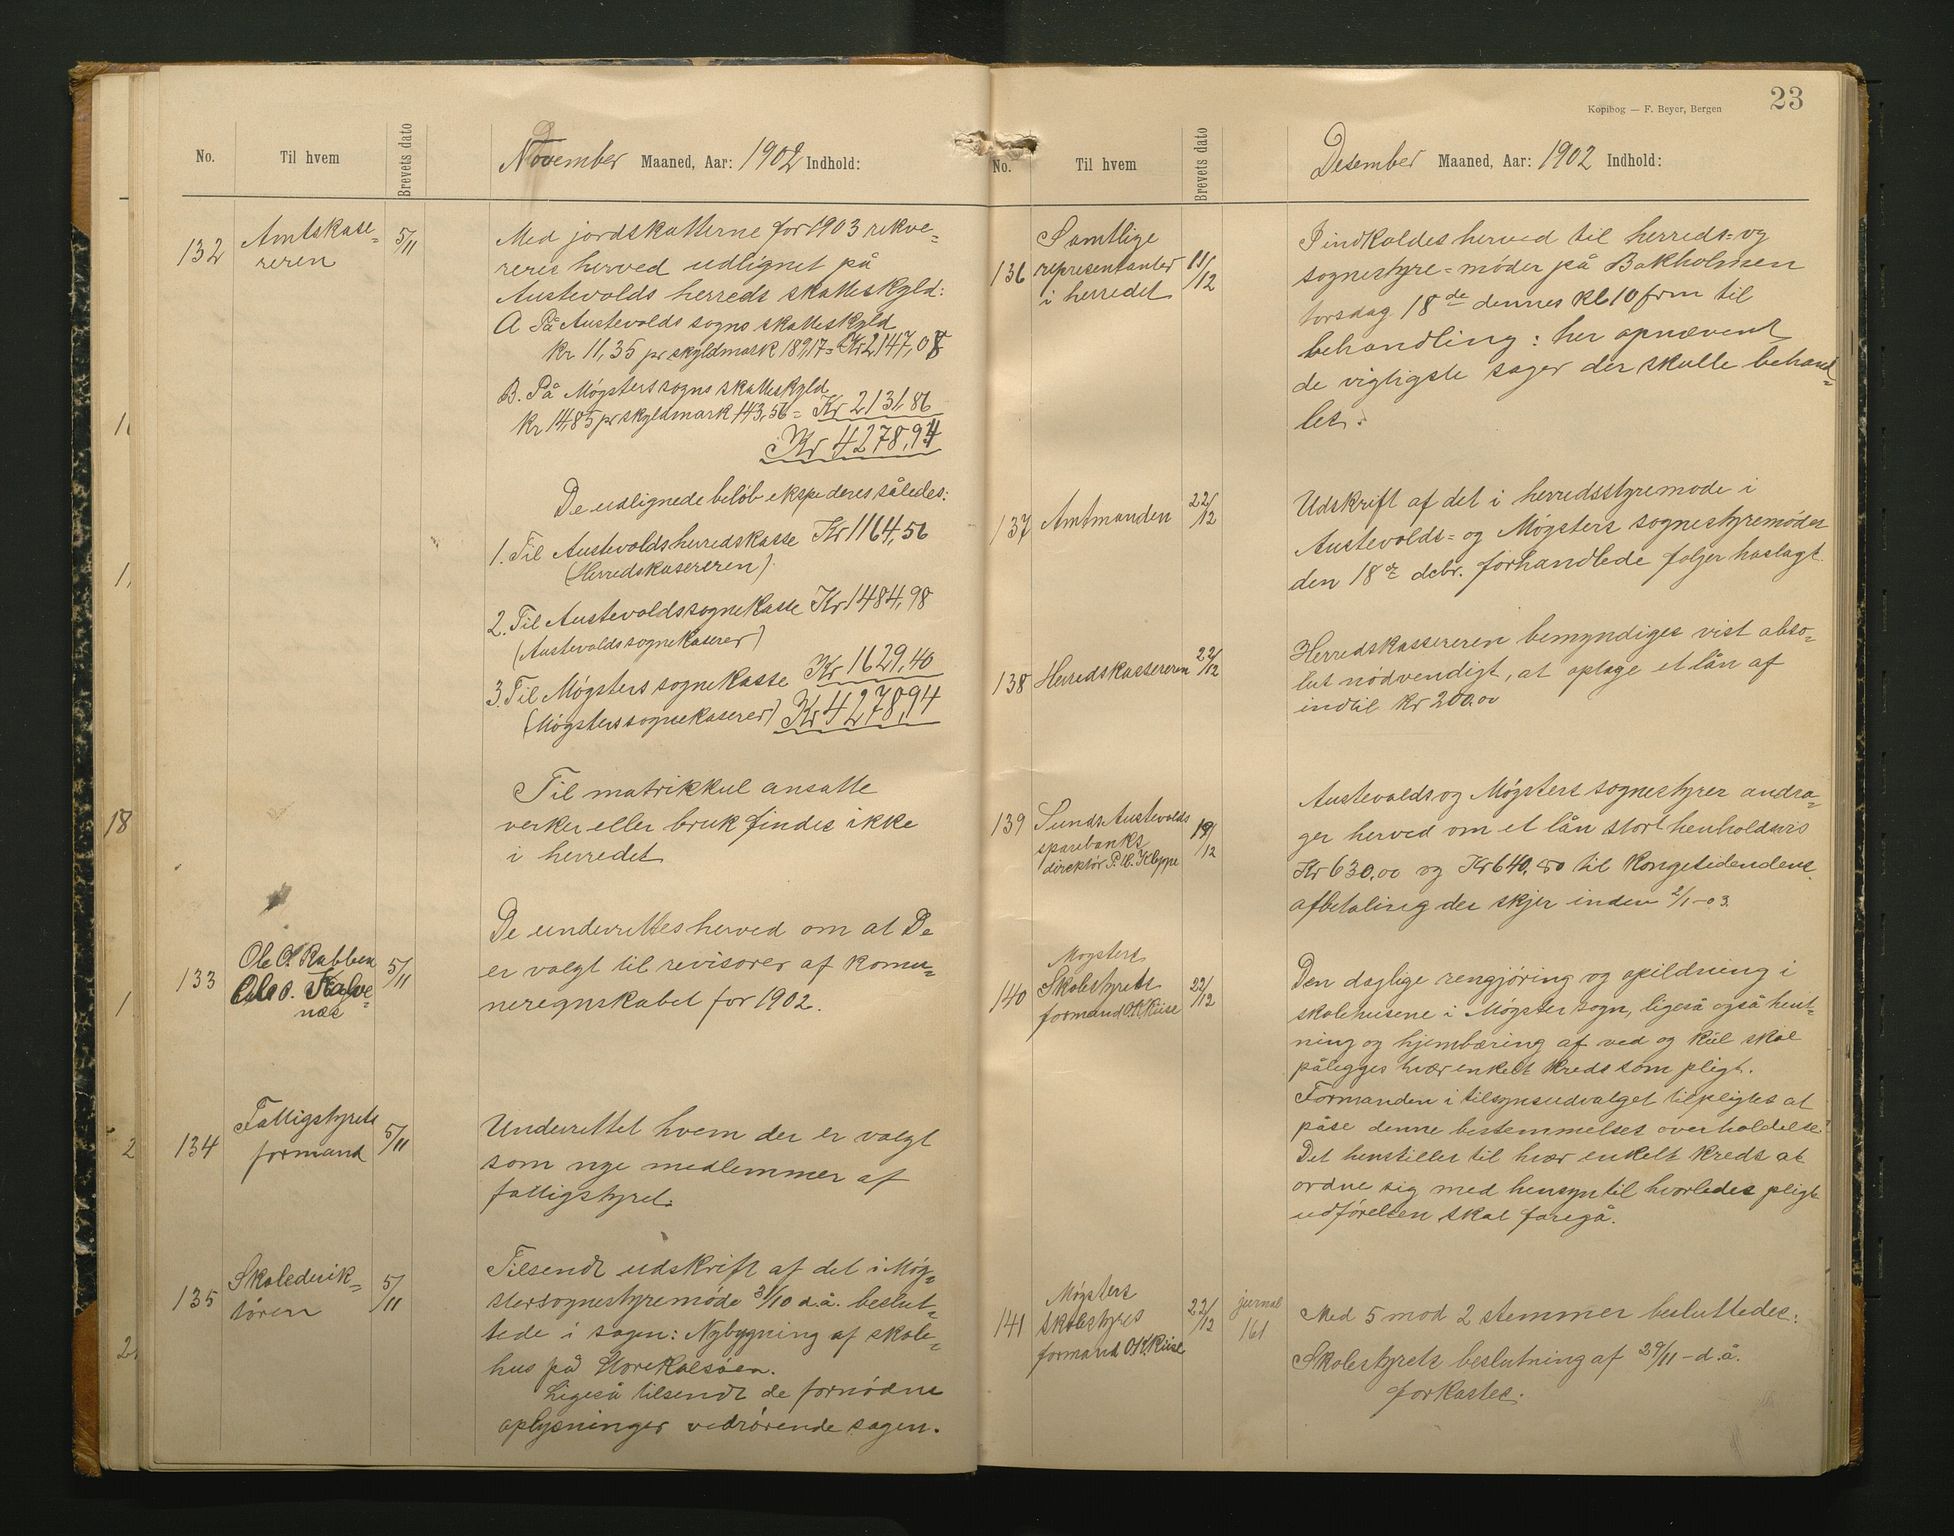 No.
Til hvem
Brevets dato
November Maaned, Aar: 1902 Indhold:
132
Amtskase-
reren
5/11
Med jordskatterne for 1903 rekve-
reres herved udlignet på
Austevolds herreds skatteskyld:
A På Austevolds sogns skatteskyld
kr 11,35 pr skyldmark 189,17 = Kr 2147,08
B. På Møgsters sogns skatteskyld
kr 14,85 pr skyldmark 143,56 = Kr 2131,86
Kr 4278,94
De udlignede beløb ekspederes således:
1. Til Austevolds herredskasse Kr 1164,56
(Herredskasereren)
2. Til Austevolds sognekasse Kr 1484,98
(Austevolds sognekaserer)
3. Til Møgsters sognekasse Kr 1629,40
(Møgsters sognekaserer) Kr 4278,94
Til matrikkul ansatte
verker eller bruk findes ikke
i herredet
133
Ole O. Rabben
Ole O. Kalve-
næs
5/11
De underrettes herved om at De
er valgt til revisorer af komu-
neregnskabet for 1902.
134
Fattigstyrets
formand
5/11
Underrettet hvem der er valgt
som nye medlemmer af
fattigstyret.
135
Skoledirik-
tøren
5/11
Tilsendt udskrift af det i Møg-
stersognestyremøde 31/10 d.å. beslut-
tede i sagen: Nybygning af skole-
hus på Storekalsøen.
Ligeså tilsendt de fornødne
oplysninger vedrørende sagen.
23
Kopibog — F. Beyer, Bergen
No.
Til hvem
Brevets dato
Desember Maaned, Aar: 1902 Indhold:
136
Samtlige
representanter
i herredet
11/12
I indkaldes herved til herreds- og
sognestyre-møder på Bakholmen
torsdag 18de dennes kl 10 frm til
behandling: her opnævent
de vigtigste sager der skulle behand-
les:
137
Amtmanden
22/12
Udskrift af det i herredsstyremøde i
Austevolds- og Møgsters sognestyremøder
den 18de debr. forhandlede følger hoslagt
138
Herredskassereren
22/12
Herredskassereren bemyndiges vist abso-
lut nødvendigt, at optage et lån af
indtil kr 200.00
139
Sunds Austevolds
sparebanks
direktør P. H. Kleppe
19/12
Austevolds og Møgsters sognestyrer andra-
ger herved om et lån stort henholdsvis
Kr 630,00 og Kr 640,50 til Kongetiendens
afbetaling der skjer inden 2/1-03.
140
Møgsters
Skolestyrets
formand O.K. Kiise
22/12
Den daglige rengjøring og opildning i
skolehusene i Møgster sogn, ligeså også hent-
ning og hjembæring af ved og kul skal
pålegges hvær enkelt kreds som pligt.
Formanden i tilsynsudvalget tilpligtes at
påse denne bestemmelses overholdelse.
Det henstilles til hvær enkelt kreds at
ordne sig med hensyn til hvorledes pligt-
udførelsen skal foregå.
141
Møgsters
skolestyres
formand O.K. Kiise
22/12
jurnal
161
Med 5 mod 2 stemmer besluttedes:
Skolestyrets beslutning af 29/11 - d.å.
forkastes.